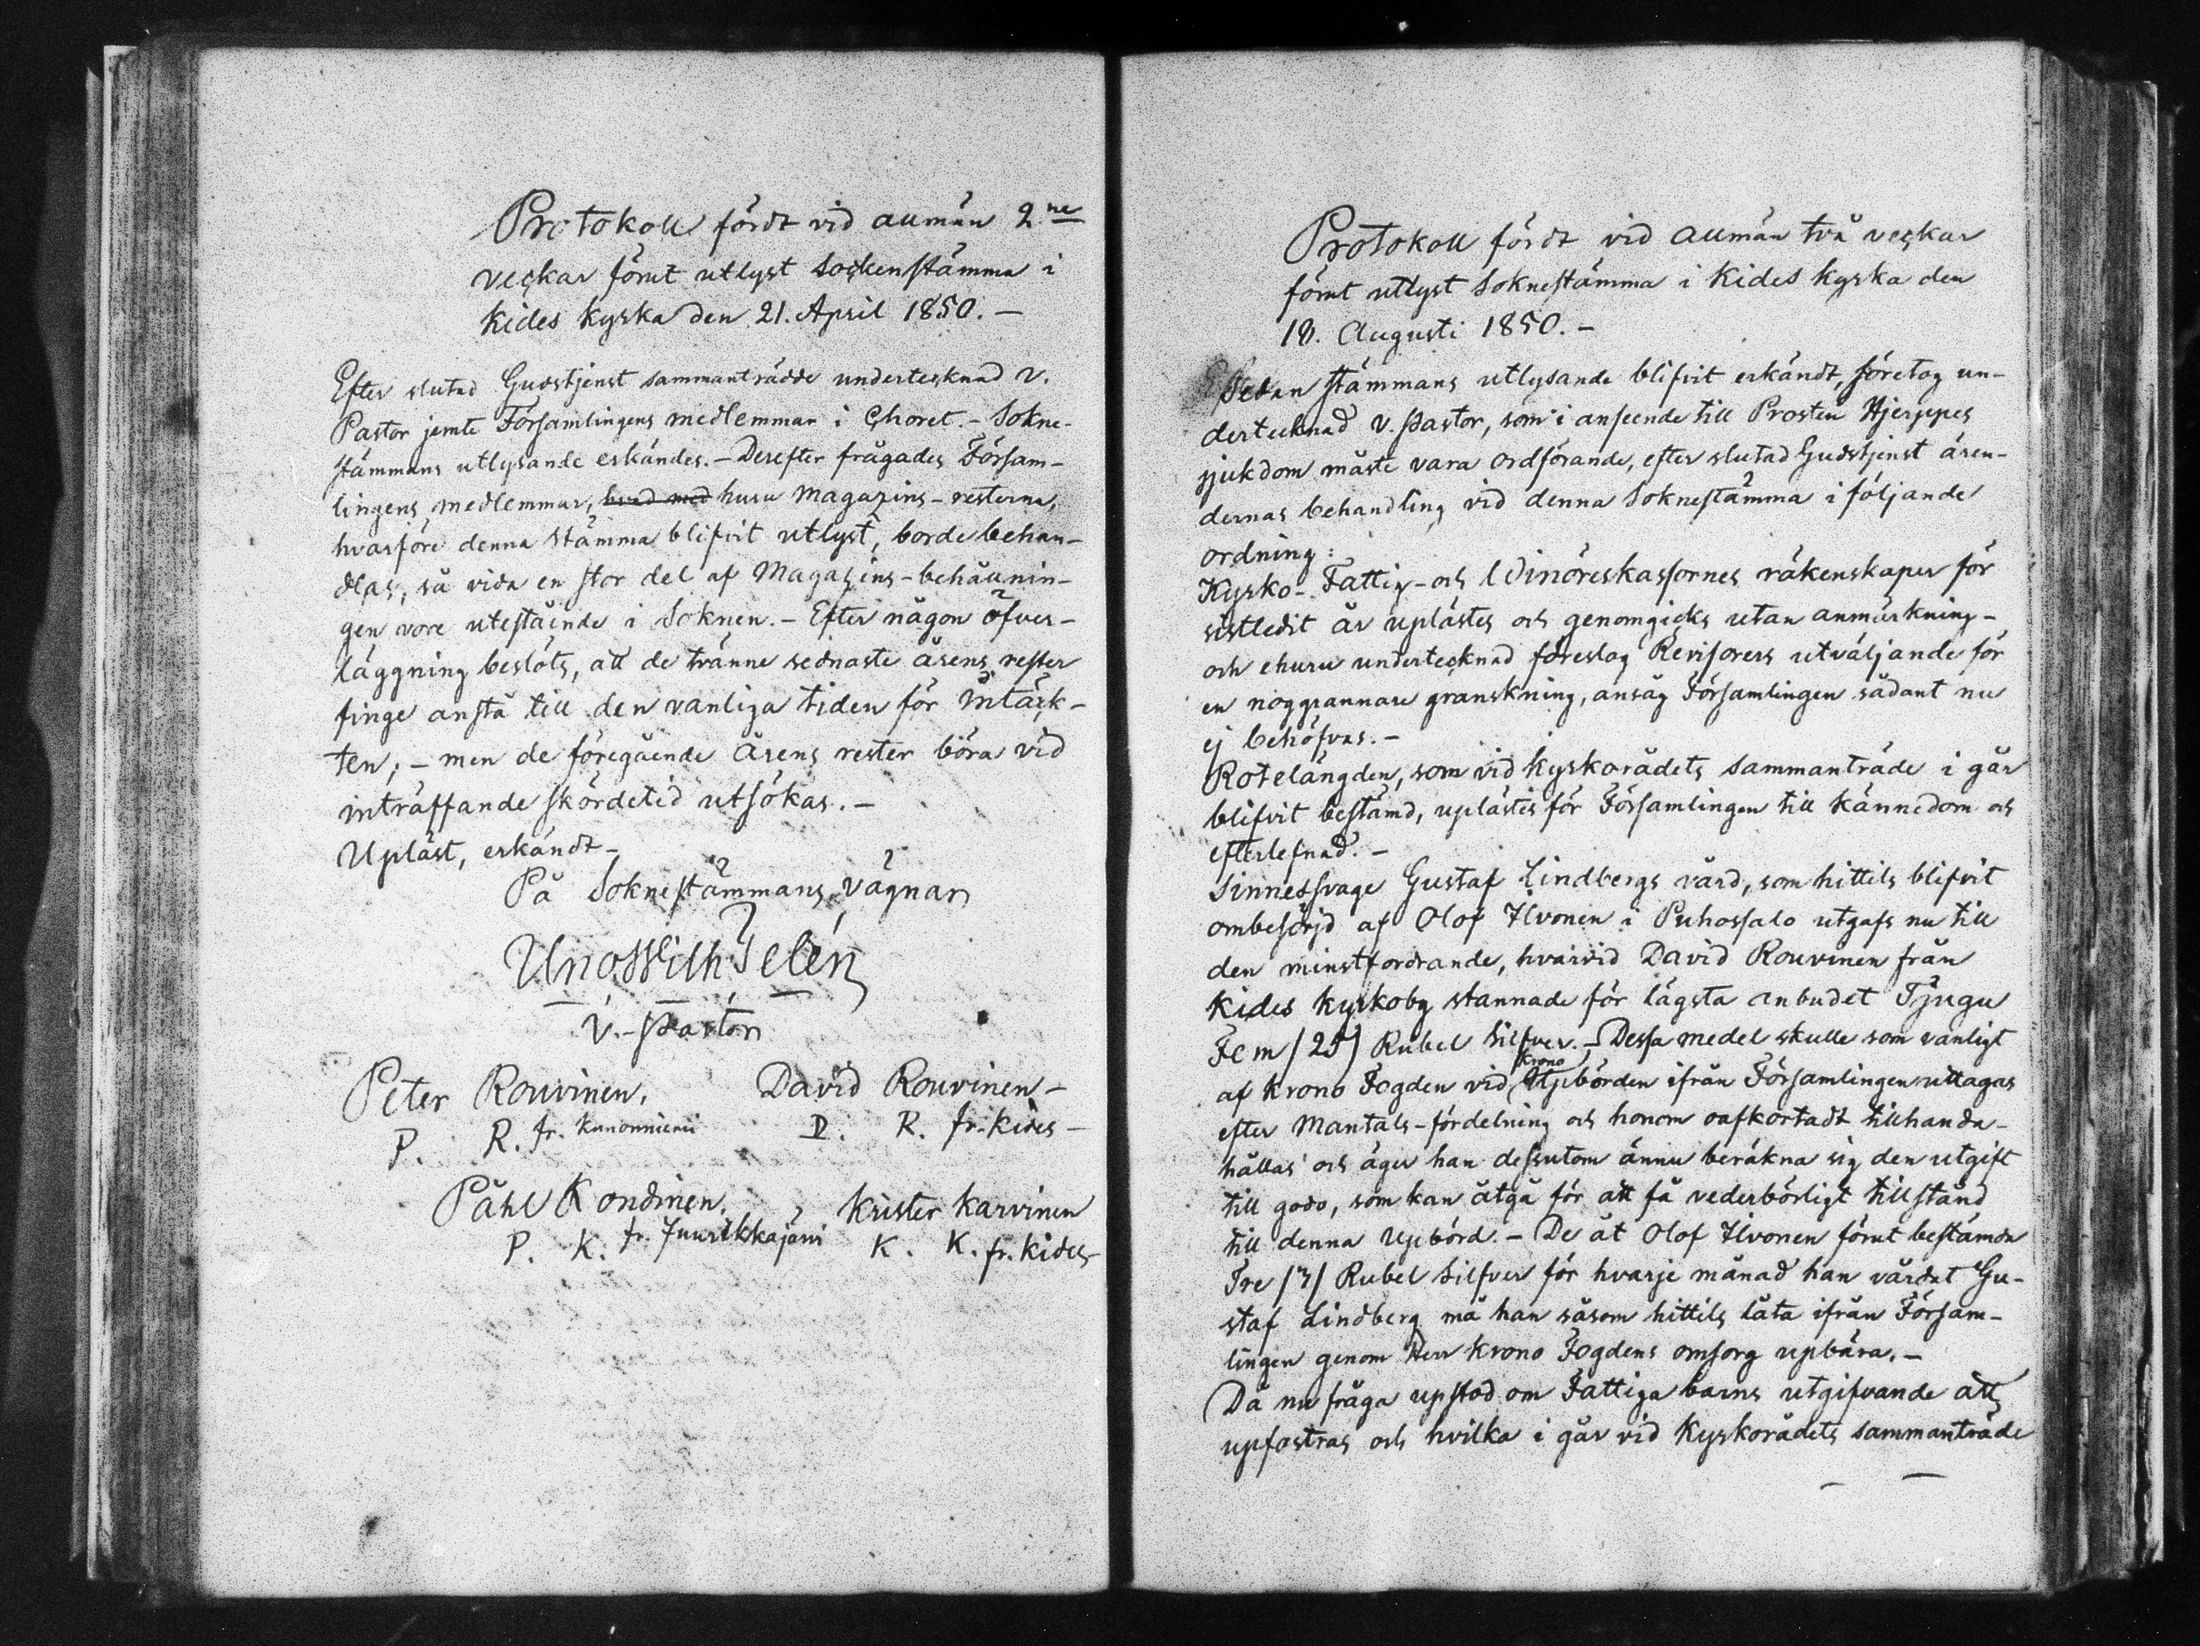 Protokoll fördt vid allmän 2.ne
veckar förut utlyst Sockenstämma i
Kides Kyrka den 21. April 1850. —
Efter slutad Gudstjenst sammanträdde undertecknad v.
Pastor jemte Församlingens medlemmar i Choret. – Sokne-
stämmans utlysande erkändes. – Derefter frågades Försam-
lingens medlemmar, hvad med huru Magazins-resterna,
hvarföre denna stämma blifvit utlyst, borde behan-
dlas, så vida en stor del af Magazins-behållnin-
gen vore utestående i Soknen. – Efter någon öfver-
läggning beslöts, att de tvänne sednaste årens rester
finge anstå till den vanliga tiden för intäck-
ten; – men de föregående årens rester böra vid
inträffande skördetid utsökas. –
Upläst, erkändt –
På Soknestämmans vägnar
Uno Wilh Telén
V.-Pastor
Peter Rouvinen, David Rouvinen –
P. R. fr. Kunonniemi D. R. fr. Kides –
Påhl Kondinen, Krister Karvinen
P. K. fr. Juurikkajärvi K. K. fr. Kides
Protokoll fördt vid allmän två veckar
förut utlyst Soknestämma i Kides Kyrka den
18. Augusti 1850. –
Sedan stämmans utlysande blifvit erkändt, företog un-
dertecknad v. Pastor, som i anseende till Prosten Hjerppes
sjukdom måste vara ordförande, efter slutad Gudstjenst ären-
dernas behandling vid denna Soknestämma i följande
ordning:
Kyrko- Fattig- och Winöreskassornes räkenskaper för
sistledit år uplästes och genomgicks utan anmärkning –
och ehuru undertecknad föreslog Revisorers utväljande för
en noggrannare granskning, ansåg Församlingen sådant nu
ej behöfvas. –
Rotelängden, som vid Kyrkorådets sammanträde i går
blifvit bestämd, uplästes för Församlingen till kännedom och
efterlefnad. –
Sinnessvage Gustaf Lindbergs vård, som hittils blifvit
ombesörjd af Olof Ilvonen i Puhossalo utgafs nu till
den minstfordrande, hvarvid David Rouvinen från
Kides Kyrkoby stannade för lägsta anbudet Tjugu
Fem /25/ Rubel Silfver. – Dessa medel skulle som vanligt
af Krono Fogden vid Krono Upbörden ifrån Församlingen uttagas
efter Mantals-fördelning och honom oafkortadt tillhanda-
hållas och äger han dessutom ännu beräkna sig den utgift
till godo, som kan åtgå för att få vederbörligt tillstånd
till denna Upbörd. – De åt Olof Ilvonen förut bestämda
Tre /3/ Rubel Silfver för hvarje månad han vårdat Gu-
staf Lindberg må han såsom hittils låta ifrån Försam-
lingen genom Herr Krono Fogdens omsorg upbära. –
Då nu fråga upstod om Fattiga barns utgifvande att
upfostras och hvilka i går vid Kyrkorådets sammanträde